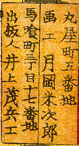 丸屋町五番地
画工月岡米次郎
馬喰町三丁目十七番地
出板人井上茂兵エ